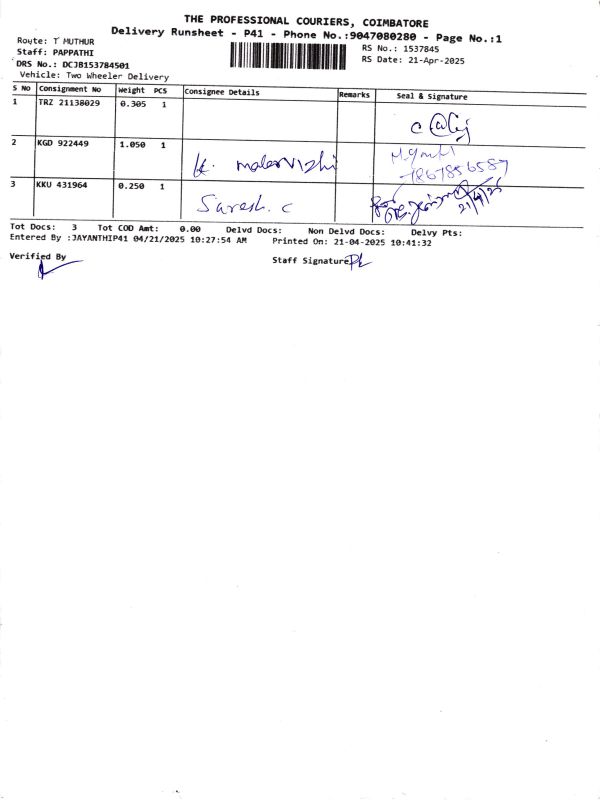 THE PROFESSIONAL COURIERS, COIMBATORE
Delivery Runsheet - P41 - Phone No.:9047080280 - Page No.:1
Route: T MUTHUR
RS No.: 1537845
Staff: PAPPATHI
RS Date: 21-Apr-2025
DRS No.: DCJB153784501
Vehicle: Two Wheeler Delivery
S No Consignment No Weight PCS Consignee Details Remarks Seal & Signature
1 TRZ 21138029 0.305 1
2 KGD 922449 1.050 1 K. malarvizhi 7867856587
3 KKU 431964 0.250 1 Suresh. C 21/4/25
Tot Docs: 3 Tot COD Amt: 0.00 Delvd Docs: Non Delvd Docs: Delvy Pts:
Entered By :JAYANTHIP41 04/21/2025 10:27:54 AM Printed On: 21-04-2025 10:41:32
Verified By
Staff Signature